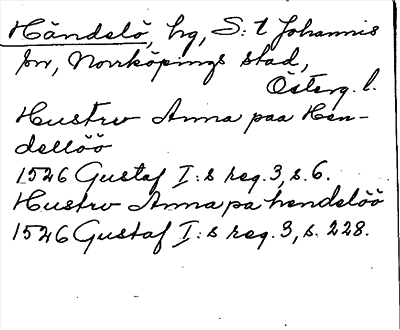 Händelö, hg, S:t Johannis
fv, Norrköpings stad,
Österg. l.
Hustrv Anna paa Hen-
dellöö
1526 Gustaf I:s reg. 3, s. 6.
Hustrv Anna pa hendelöö
1526 Gustaf I:s reg. 3, s. 228.